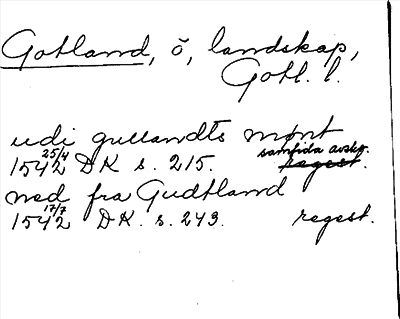 Gotland, ö, landskap,
Gotl. l.
udi gullandts mønt
1542 25/4 DK s. 215. samtida avskr. regest.
ned fra Gudtland
1542 17/7 DK. s. 243. regest.